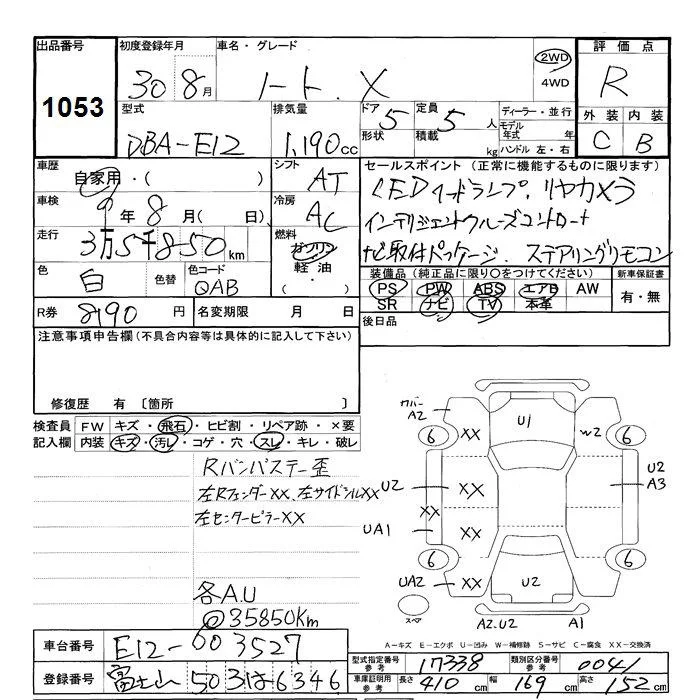 出品番号 初度登録年月 車名・グレード 評価点
1053 30 8月 ノート . X 2WD R
4WD
型式 排気量 ドア 5 定員 5人 ディーラー・並行 外装 内装
DBA-E12 1,190cc 形状 積載 kg モデル年式 年 C B
ハンドル 左・右
車歴 シフト セールスポイント(正常に機能するものに限ります)
自家用・( ) AT LEDヘッドランプ. リヤカメラ
車検 年 8月( 日) 冷房 AC インテリジェントクルーズコントロール
走行 3万5千850km 燃料 ガソリン ナビ取付パッケージ. ステアリングリモコン
軽油・( )
色 白 色替 色コード QAB 装備品(純正品に限り○をつけてください) 新車保証書
PS PW ABS エアB AW 有・無
R券 8190円 名変期限 月 日 SR ナビ TV 本革
後日品
注意事項申告欄(不具合内容等は具体的に記入して下さい)
修復歴 有〔箇所 〕
検査員 FW キズ・飛石・ヒビ割・リペア跡・×要
記入欄 内装 キズ・汚レ・コゲ・穴・スレ・キレ・破レ
カバー A2 XX U1 W2
6 6
Rバンパステー歪
左Rフェンダー XX、左サイドシル XX U2 XX U2 A3
左センターピラー XX XX
UA1 XX
6 6
UA2 XX U2
各A.U スペア A2.U2 A1
@35850Km
車台番号 E12-603527 A-キズ E-エクボ U-凹み W-補修跡 S-サビ C-腐食 XX-交換済
型式指定番号 参考 17338 類別区分番号 参考 0041
登録番号 富士山 503 は 6346 車庫証明 参考 長さ 410cm 幅 169cm 高さ 152cm